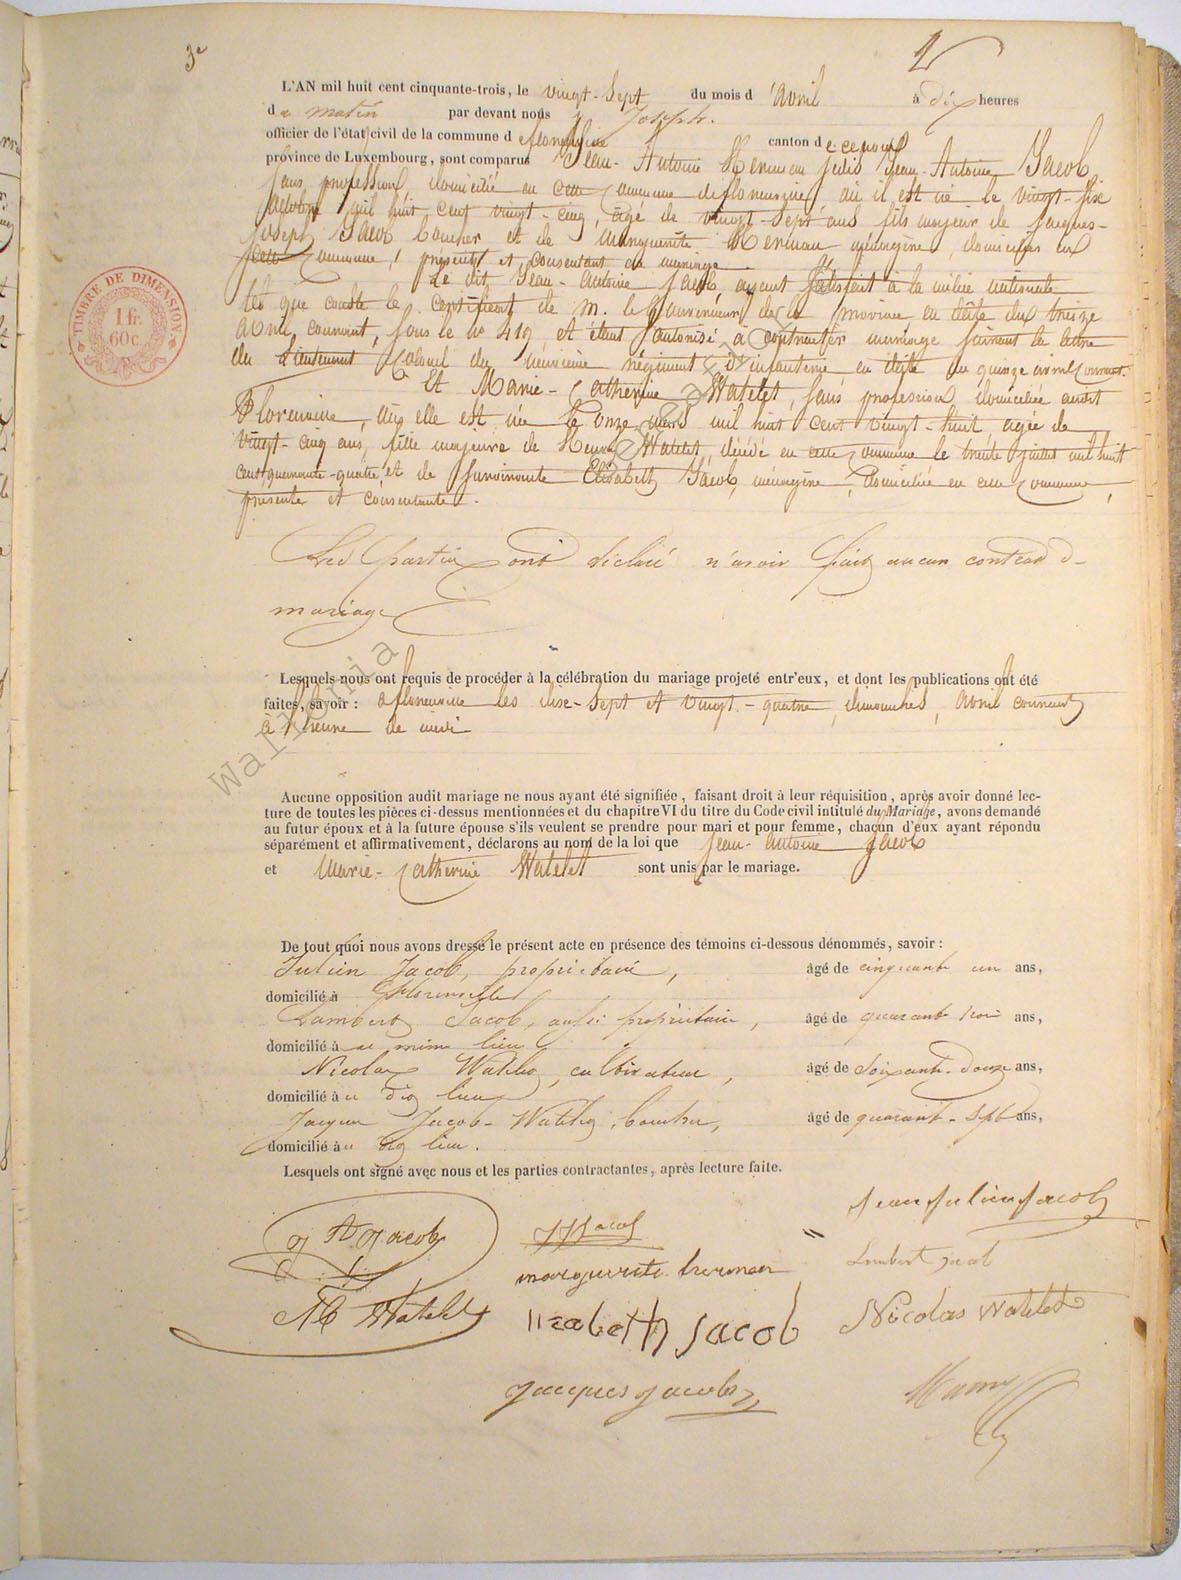 3e
L'AN mil huit cent cinquante-trois, le vingt-sept du mois d'avril à dix heures
du matin par devant nous Joseph
officier de l'état civil de la commune de canton de
province de Luxembourg, sont comparus Jean-Antoine Jean-Antoine Jacob
sans profession, domicilié en cette commune de où il est né le vingt-six
octobre mil huit cent vingt-cinq, âgé de vingt-sept ans fils majeur de Jacques-
Joseph Jacob et de Marguerite ménagère, domiciliés en
cette commune, présents et consentant au mariage
Le dit Jean-Antoine Jacob, ayant satisfait à la milice nationale
tel que conste le certificat de M. le Gouverneur de la province en date du treize
avril courant, sous le no 419, et étant autorisé à contracter mariage suivant la lettre
du Lieutenant Colonel du neuvième régiment d'infanterie en date du quinze avril courant.
Et Marie-Catherine Watelet, sans profession domiciliée audit
où elle est née le onze mars mil huit cent vingt-huit, agée de
vingt-cinq ans, fille majeure de Henry Watelet, décédé en cette commune le trente juillet mil huit
cent quarante-quatre, et de survivante Elisabeth Jacob, ménagère, domiciliée en cette commune,
présente et consentante.
Les parties ont déclaré n'avoir fait aucun contrat de
mariage
Lesquels nous ont requis de procéder à la célébration du mariage projeté entr'eux, et dont les publications ont été
faites, savoir : les dix-sept et vingt-quatre, dimanches, avril courant
à l'heure de midi
Aucune opposition audit mariage ne nous ayant été signifiée, faisant droit à leur réquisition, après avoir donné lec-
ture de toutes les pièces ci-dessus mentionnées et du chapitre VI du titre du Code civil intitulé du Mariage, avons demandé
au futur époux et à la future épouse s'ils veulent se prendre pour mari et pour femme, chacun d'eux ayant répondu
séparément et affirmativement, déclarons au nom de la loi que Jean-Antoine Jacob
et Marie-Catherine Watelet sont unis par le mariage.
De tout quoi nous avons dressé le présent acte en présence des témoins ci-dessous dénommés, savoir :
Julien Jacob, propriétaire, âgé de cinquante un ans,
domicilié à
Lambert Jacob, aussi propriétaire, âgé de quarante trois ans,
domicilié au même lieu
Nicolas Watelet, cultivateur, âgé de soixante-douze ans,
domicilié au dit lieu
Jacques Jacob-Watelet, âgé de quarante-sept ans,
domicilié au dit lieu.
Lesquels ont signé avec nous et les parties contractantes, après lecture faite.
Jean Julien Jacob
J A Jacob
JJ Jacob
marguerite herman
Lambert Jacob
MC Watelet
lizabeth jacob
Nicolas Watelet
jacques jacob
TIMBRE DE DIMENSION
1 fr.
60 c.